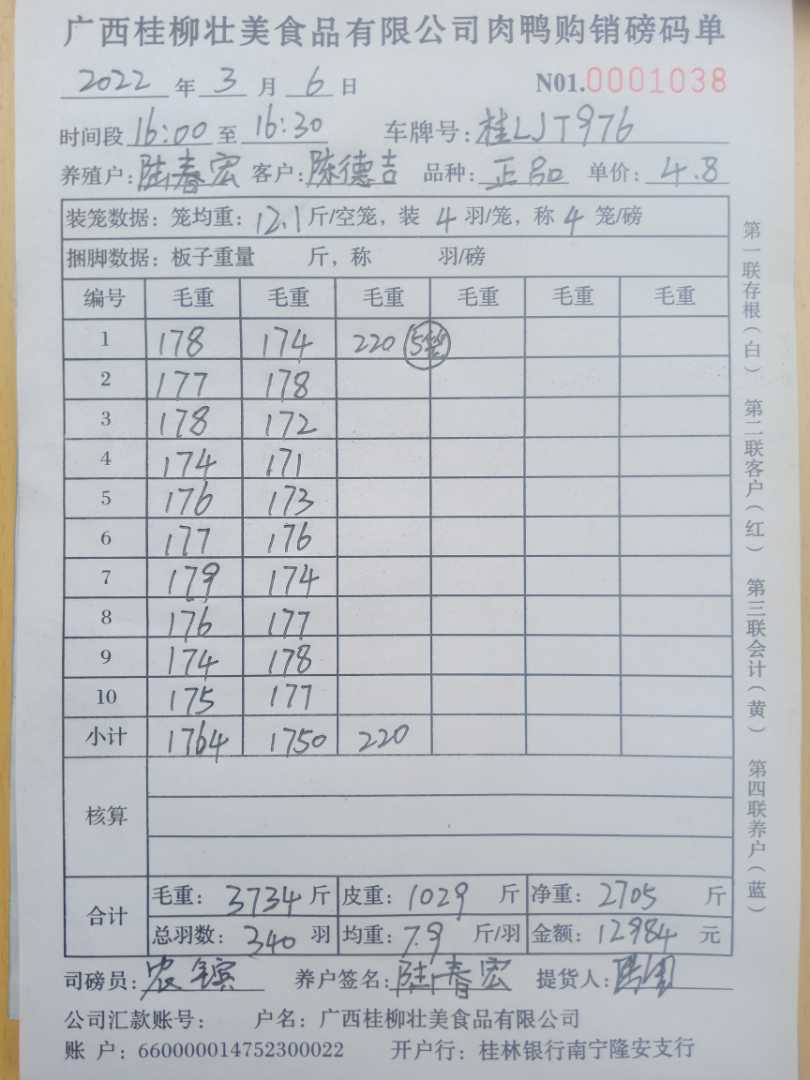 广西桂柳壮美食品有限公司肉鸭购销磅码单
2022 年 3 月 6 日 N01.0001038
时间段 16:00 至 16:30 车牌号: 桂LJT976
养殖户: 陆春宏 客户: 陈德吉 品种: 正品 单价: 4.8
装笼数据: 笼均重: 12.1 斤/空笼, 装 4 羽/笼, 称 4 笼/磅
捆脚数据: 板子重量 斤, 称 羽/磅
编号 毛重 毛重 毛重 毛重 毛重 毛重
1 178 174 220 5笼
2 177 178
3 178 172
4 174 171
5 176 173
6 177 176
7 179 174
8 176 177
9 174 178
10 175 177
小计 1764 1750 220
核算
合计 毛重: 3734 斤 皮重: 1029 斤 净重: 2705 斤
总羽数: 340 羽 均重: 7.9 斤/羽 金额: 12984 元
司磅员: 农镔 养户签名: 陆春宏 提货人:
公司汇款账号: 户名: 广西桂柳壮美食品有限公司
账 户: 660000014752300022 开户行: 桂林银行南宁隆安支行
第一联存根(白) 第二联客户(红) 第三联会计(黄) 第四联养户(蓝)